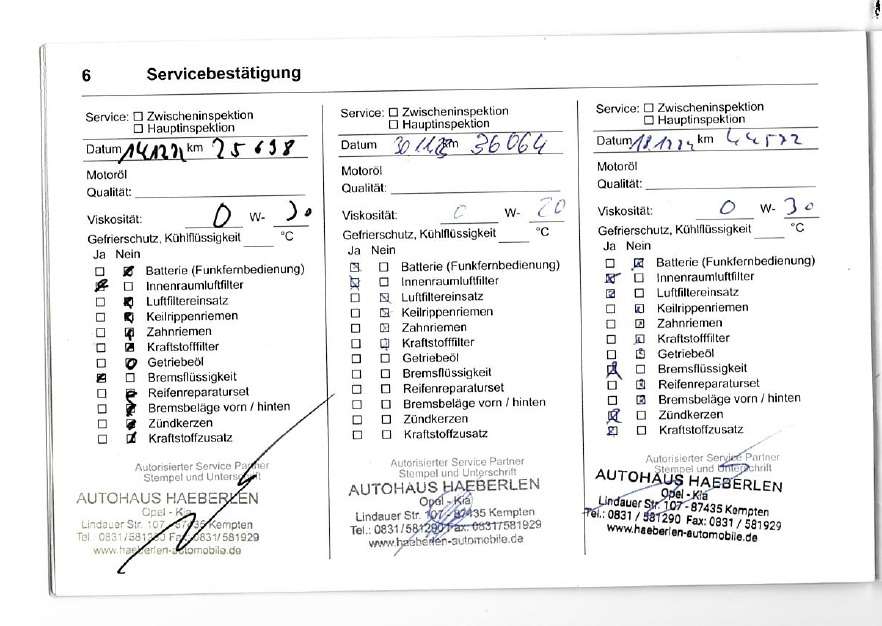 6 Servicebestätigung
Service: Zwischeninspektion
Hauptinspektion
Datum km 25698
Motoröl
Qualität:
Viskosität: 0 W- 30
Gefrierschutz, Kühlflüssigkeit °C
Ja Nein
Batterie (Funkfernbedienung)
Innenraumluftfilter
Luftfiltereinsatz
Keilrippenriemen
Zahnriemen
Kraftstofffilter
Getriebeöl
Bremsflüssigkeit
Reifenreparaturset
Bremsbeläge vorn / hinten
Zündkerzen
Kraftstoffzusatz
Autorisierter Service Partner
Stempel und Unterschrift
AUTOHAUS HAEBERLEN
Opel - Kia
Lindauer Str. 107 - 87435 Kempten
Tel.: 0831/581290 Fax: 0831/581929
www.haeberlen-automobile.de
Service: Zwischeninspektion
Hauptinspektion
Datum km 36064
Motoröl
Qualität:
Viskosität: 0 W- 20
Gefrierschutz, Kühlflüssigkeit °C
Ja Nein
Batterie (Funkfernbedienung)
Innenraumluftfilter
Luftfiltereinsatz
Keilrippenriemen
Zahnriemen
Kraftstofffilter
Getriebeöl
Bremsflüssigkeit
Reifenreparaturset
Bremsbeläge vorn / hinten
Zündkerzen
Kraftstoffzusatz
Autorisierter Service Partner
Stempel und Unterschrift
AUTOHAUS HAEBERLEN
Opel - Kia
Lindauer Str. 107 - 87435 Kempten
Tel.: 0831/581290 Fax: 0831/581929
www.haeberlen-automobile.de
Service: Zwischeninspektion
Hauptinspektion
Datum km 44572
Motoröl
Qualität:
Viskosität: 0 W- 30
Gefrierschutz, Kühlflüssigkeit °C
Ja Nein
Batterie (Funkfernbedienung)
Innenraumluftfilter
Luftfiltereinsatz
Keilrippenriemen
Zahnriemen
Kraftstofffilter
Getriebeöl
Bremsflüssigkeit
Reifenreparaturset
Bremsbeläge vorn / hinten
Zündkerzen
Kraftstoffzusatz
Autorisierter Service Partner
Stempel und Unterschrift
AUTOHAUS HAEBERLEN
Opel - Kia
Lindauer Str. 107 - 87435 Kempten
Tel.: 0831 / 581290 Fax: 0831 / 581929
www.haeberlen-automobile.de